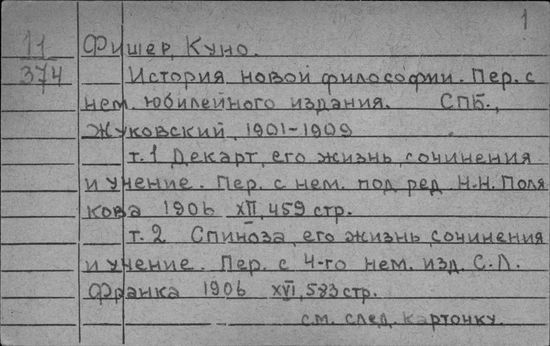 1
11
374
Фишер, Куно.
История новой философии. Пер. с
нем. юбилейного издания. СПБ.,
Жуковский, 1901-1909
т.1 Декарт, его жизнь, сочинения
и учение. Пер. с нем. под ред. Н.Н. Поля
кова 1906 XII, 459 стр.
т.2 Спиноза, его жизнь, сочинения
и учение. Пер. с 4-го нем. изд. С.Л.
Франка 1906 XVI, 583 стр.
см. след. картонку.